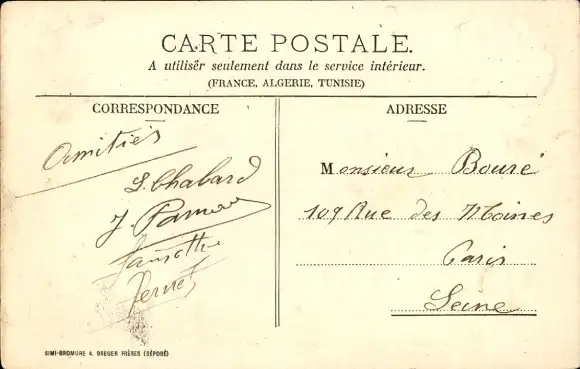 CARTE POSTALE.
A utiliser seulement dans le service intérieur.
(FRANCE, ALGERIE, TUNISIE)
CORRESPONDANCE
Amitiés
L. Chabard
J.
ADRESSE
Monsieur Bouré
109 Rue des Moines
Paris
Seine
SIMI-BROMURE A. BREGER FRÈRES (DÉPOSÉ)